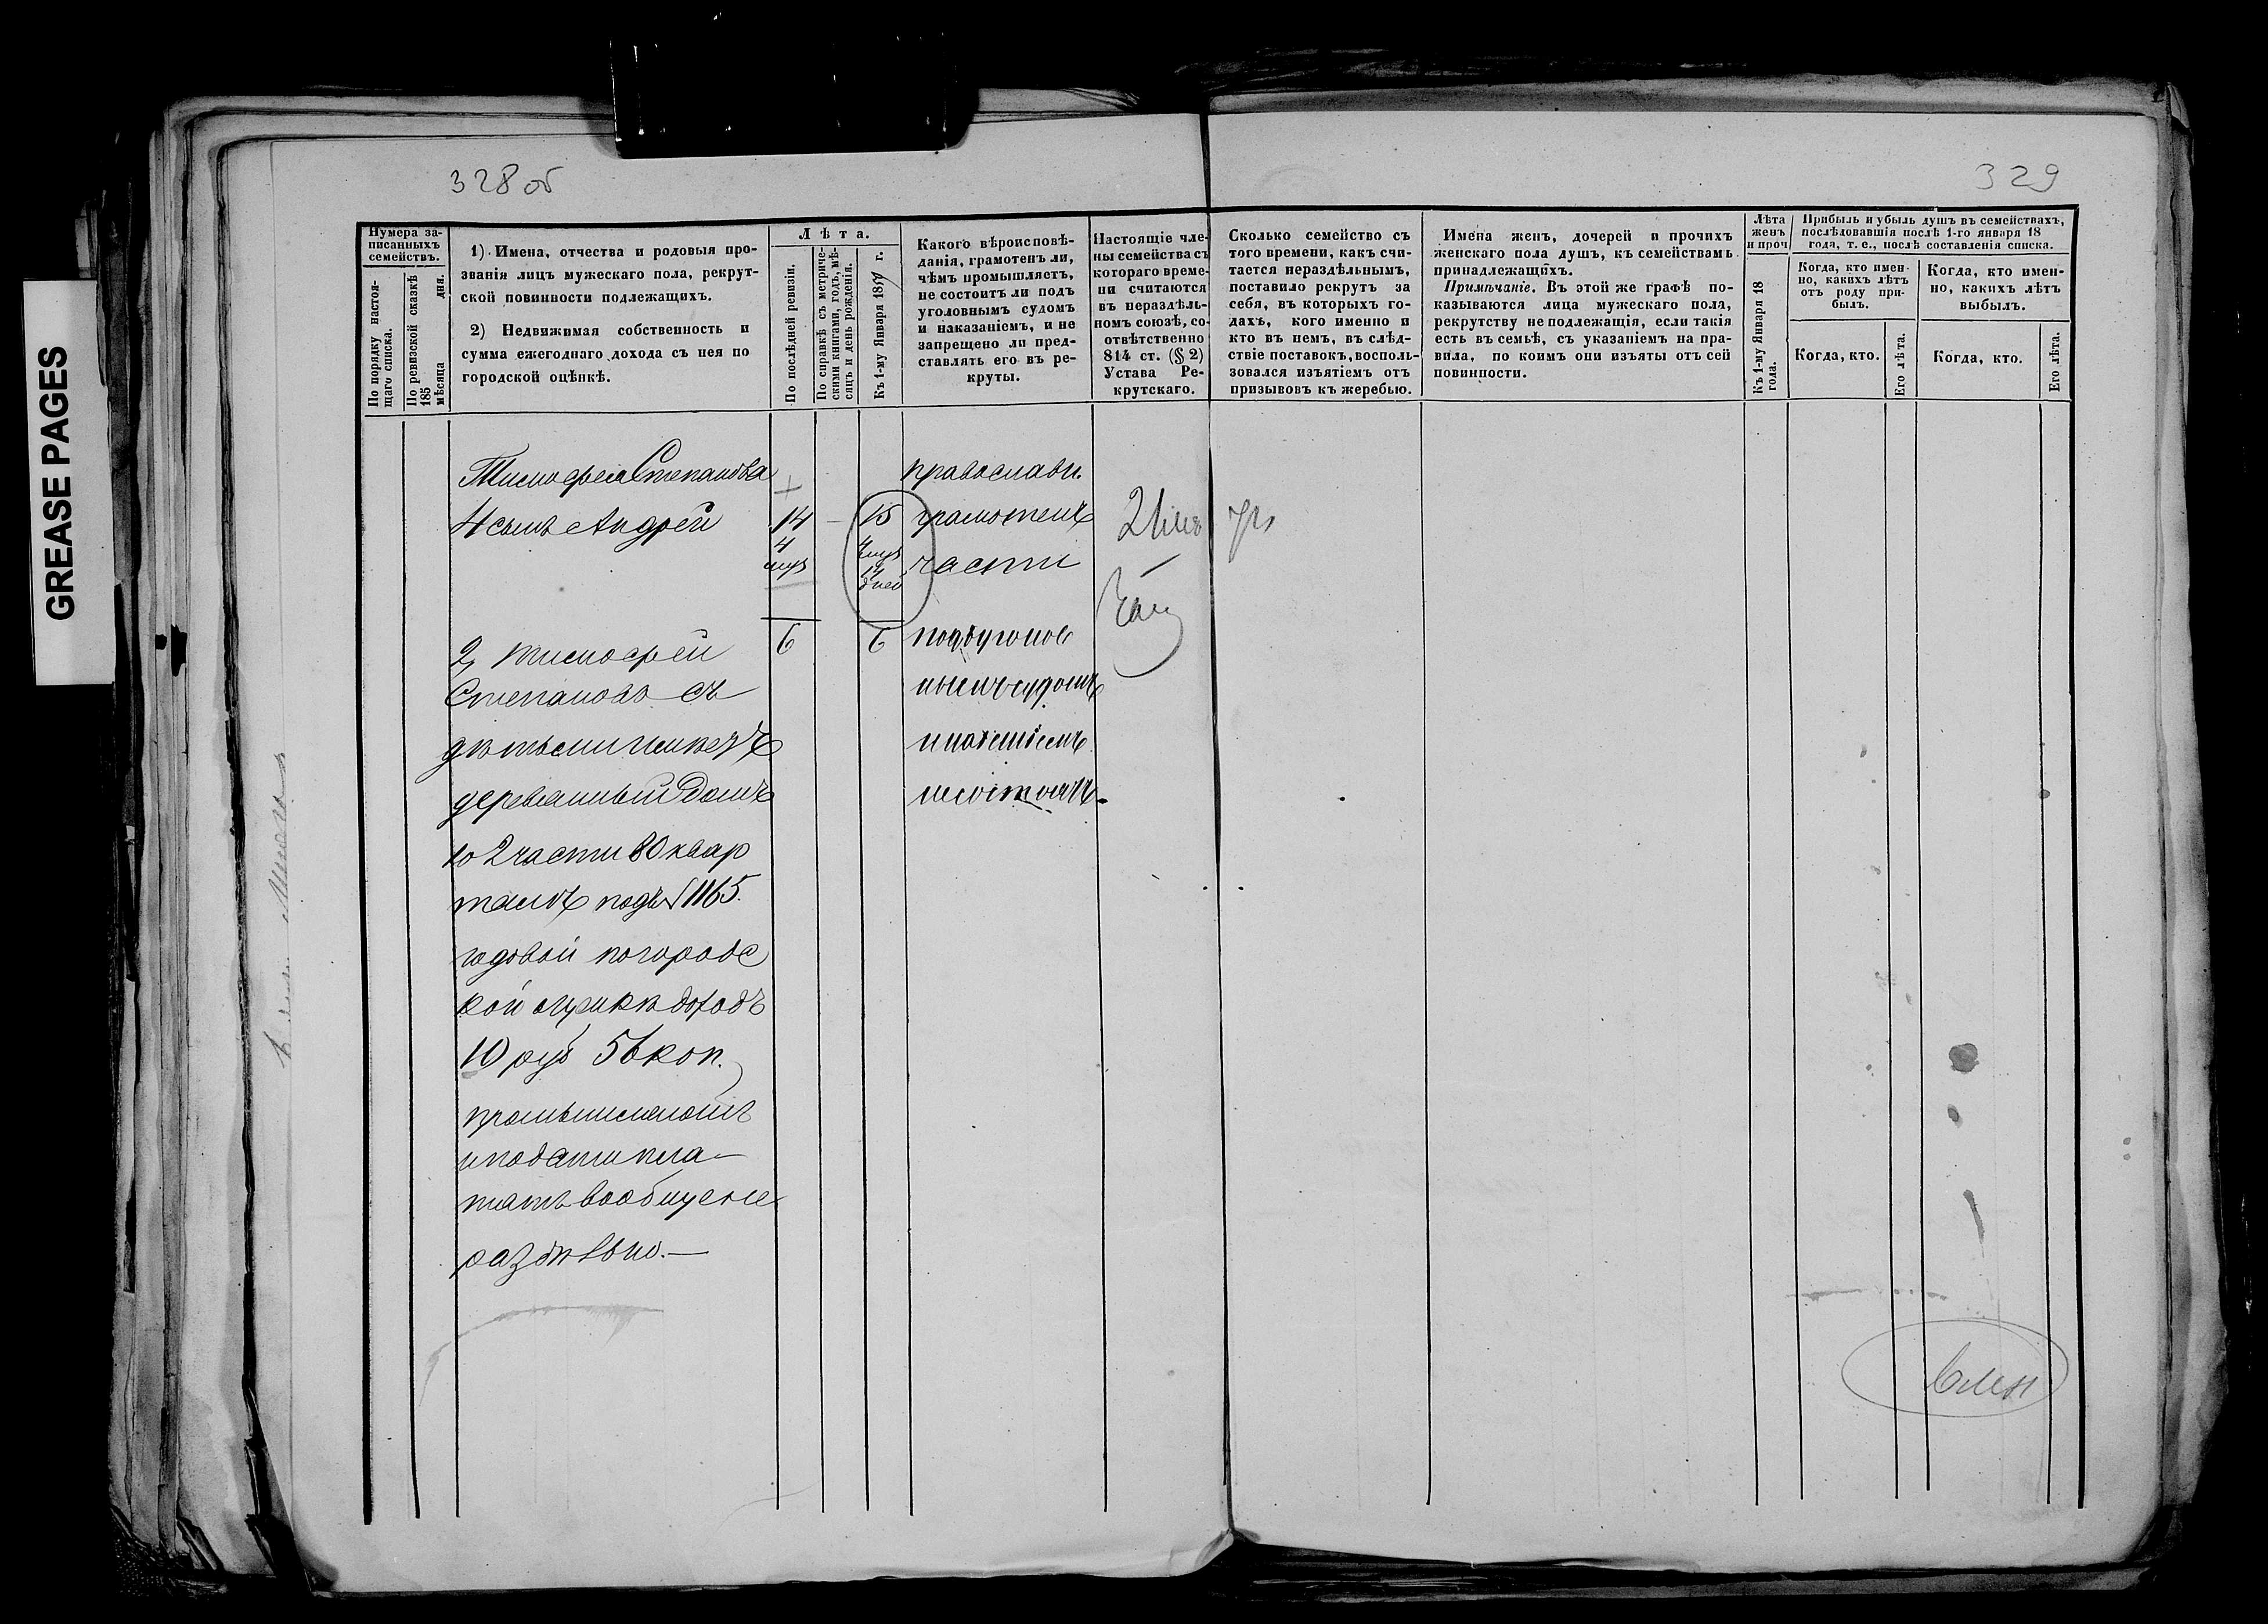 GREASE PAGES
328 об
329
Нумера записанныхъ семействъ.
По порядку настоящаго списка.
По ревизской сказкѣ 185 мѣсяца дня.
1) Имена, отчества и родовыя прозванія лицъ мужескаго пола, рекрутской повинности подлежащихъ.
2) Недвижимая собственность и сумма ежегоднаго дохода съ нея по городской оцѣнкѣ.
Лѣта.
По послѣдней ревизіи.
По справкѣ съ метрическими книгами, годъ, мѣсяцъ и день рожденія.
Къ 1-му Января 1859 г.
Какого вѣроисповѣданія, грамотенъ ли, чѣмъ промышляетъ, не состоитъ ли подъ уголовнымъ судомъ и наказаніемъ, и не запрещено ли представлять его въ рекруты.
Настоящіе члены семейства съ котораго времени считаются въ нераздѣльномъ союзѣ, соотвѣтственно 814 ст. (§ 2) Устава Рекрутскаго.
Сколько семейство съ того времени, какъ считается нераздѣльнымъ, поставило рекрутъ за себя, въ которыхъ годахъ, кого именно и кто въ немъ, въ слѣдствіе поставокъ, воспользовался изъятіемъ отъ призывовъ къ жеребью.
Имена женъ, дочерей и прочихъ женскаго пола душъ, къ семействамъ принадлежащихъ.
Примѣчаніе. Въ этой же графѣ показываются лица мужескаго пола, рекрутству не подлежащія, если такія есть въ семьѣ, съ указаніемъ на правила, по коимъ они изъяты отъ сей повинности.
Лѣта женъ и проч
Къ 1-му Января 18 года.
Прибыль и убыль душъ въ семействахъ, послѣдовавшія послѣ 1-го января 18 года, т. е., послѣ составленія списка.
Когда, кто именно, какихъ лѣтъ отъ роду прибылъ.
Когда, кто именно, какихъ лѣтъ выбылъ.
Когда, кто.
Его лѣта.
Когда, кто.
Его лѣта.
Тимофея Степанова
4 сынъ Андрей
14
4
мѣс
15
4 мѣс
14
дней
православн.
грамотенъ
части
6
6
2, Тимофей
Степановъ съ
дѣтьми имѣетъ
деревянный домъ
во 2 части 80 квар
талѣ подъ № 1165.
годовой погородс
кой оцѣнкѣ доходъ
10 руб 56 коп.
промышляютъ
и подати пла-
тятъ вообще не
раздѣльно.—
подъ уголов
нымъ судомъ
не состоятъ.